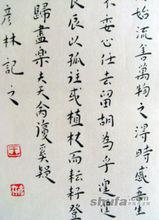 始流善萬物之得時感吾生
不委心任去留胡為乎遑遑
良辰以孤往或植杖而耘耔登
歸盡樂夫天命復奚疑
彥林記之
shufa.com